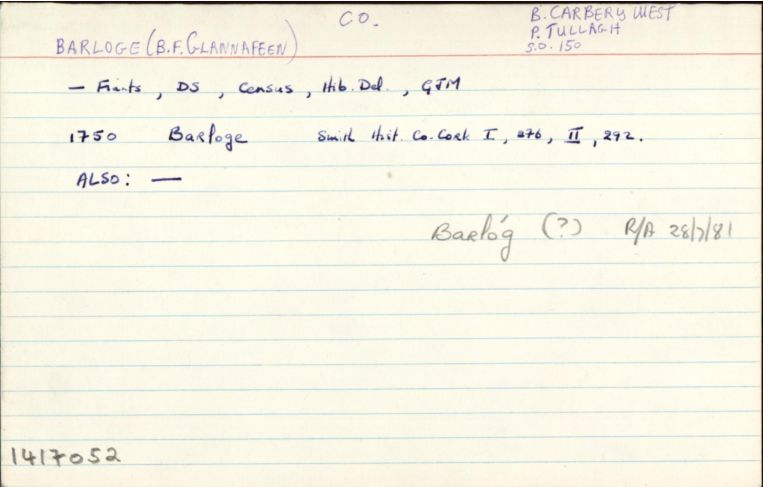 CO.
B. CARBERY WEST
P. TULLAGH
S.O. 150
BARLOGE (B.F. GLANNAFEEN)
— Fiants, DS, Census, Hib. Del., GJM
1750 Barloge Smith Hist. Co. Cork I, 276, II, 292.
ALSO: —
Barlóg (?) R/A 28/7/81
1417052